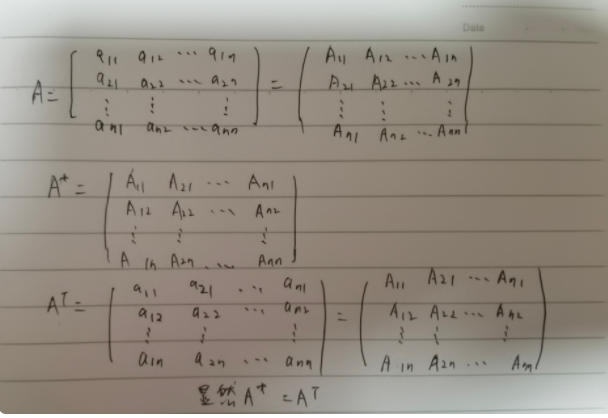 Date
A = [ a11 a12 ⋯ a1n = ( A11 A12 ⋯ A1n
a21 a22 ⋯ a2n A21 A22 ⋯ A2n
⋮ ⋮ ⋮ ⋮ ⋮ ⋮
an1 an2 ⋯ ann ] An1 An2 ⋯ Ann )
A* = ( A11 A21 ⋯ An1
A12 A22 ⋯ An2
⋮ ⋮ ⋮
A1n A2n ⋯ Ann )
Aᵀ = ( a11 a21 ⋯ an1 = ( A11 A21 ⋯ An1
a12 a22 ⋯ an2 A12 A22 ⋯ An2
⋮ ⋮ ⋮ ⋮ ⋮ ⋮
a1n a2n ⋯ ann ) A1n A2n ⋯ Ann )
显然 A* = Aᵀ